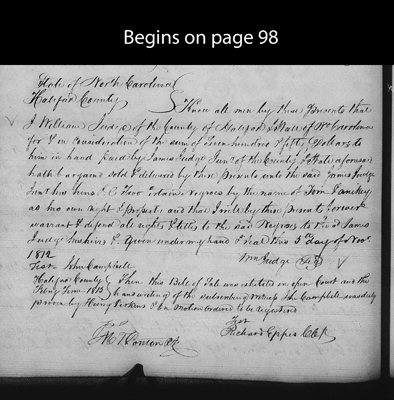 Begins on page 98
State of North Carolina
Halifax County Know all men by these presents that
I William Judge of the County of Halifax & State of No Carolina
for & in Consideration of the sum of hundred & fifty Dollars to
him in hand paid by James Judge Junr of the County & State aforesaid
hath bargained Sold & delivered by these presents unto the said James Judge
Junr his heirs & Four Certain Negroes by the name of Tom
as his own right & property and that I will by these presents forever
warrant & defend all rights & titles to the said Negroes to the sd James
Judge his heirs &c Given under my hand & Seal this 5th day of Novr
1812
Wm Judge
Test John Campbell
Halifax County
Feby Term 1813 Then this Bill of Sale was exhibited in open Court and the
handwriting of the subscribing witness John Campbell was duly
proven by Perkins & on motion ordered to be registered
Test
Richard Eppes Clk